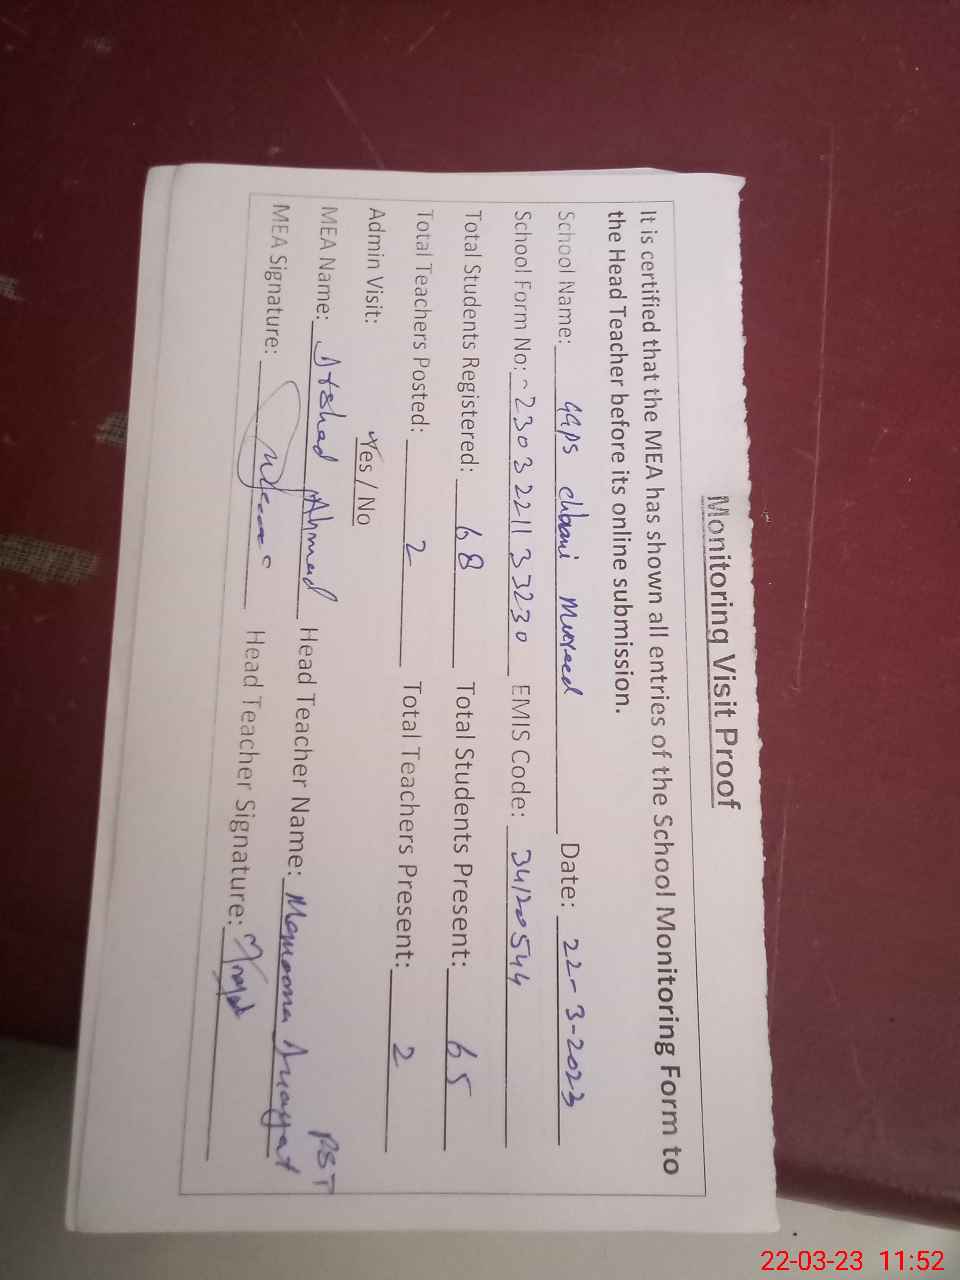 Monitoring Visit Proof
It is certified that the MEA has shown all entries of the School Monitoring Form to
the Head Teacher before its online submission.
School Name: GGPS Date: 22-3-2023
School Form No: 2303221133230 EMIS Code: 34120544
Total Students Registered: 68 Total Students Present: 65
Total Teachers Posted: 2 Total Teachers Present: 2
Admin Visit: Yes / No
MEA Name: Ahmad Head Teacher Name: PST
MEA Signature: Head Teacher Signature:
22-03-23 11:52